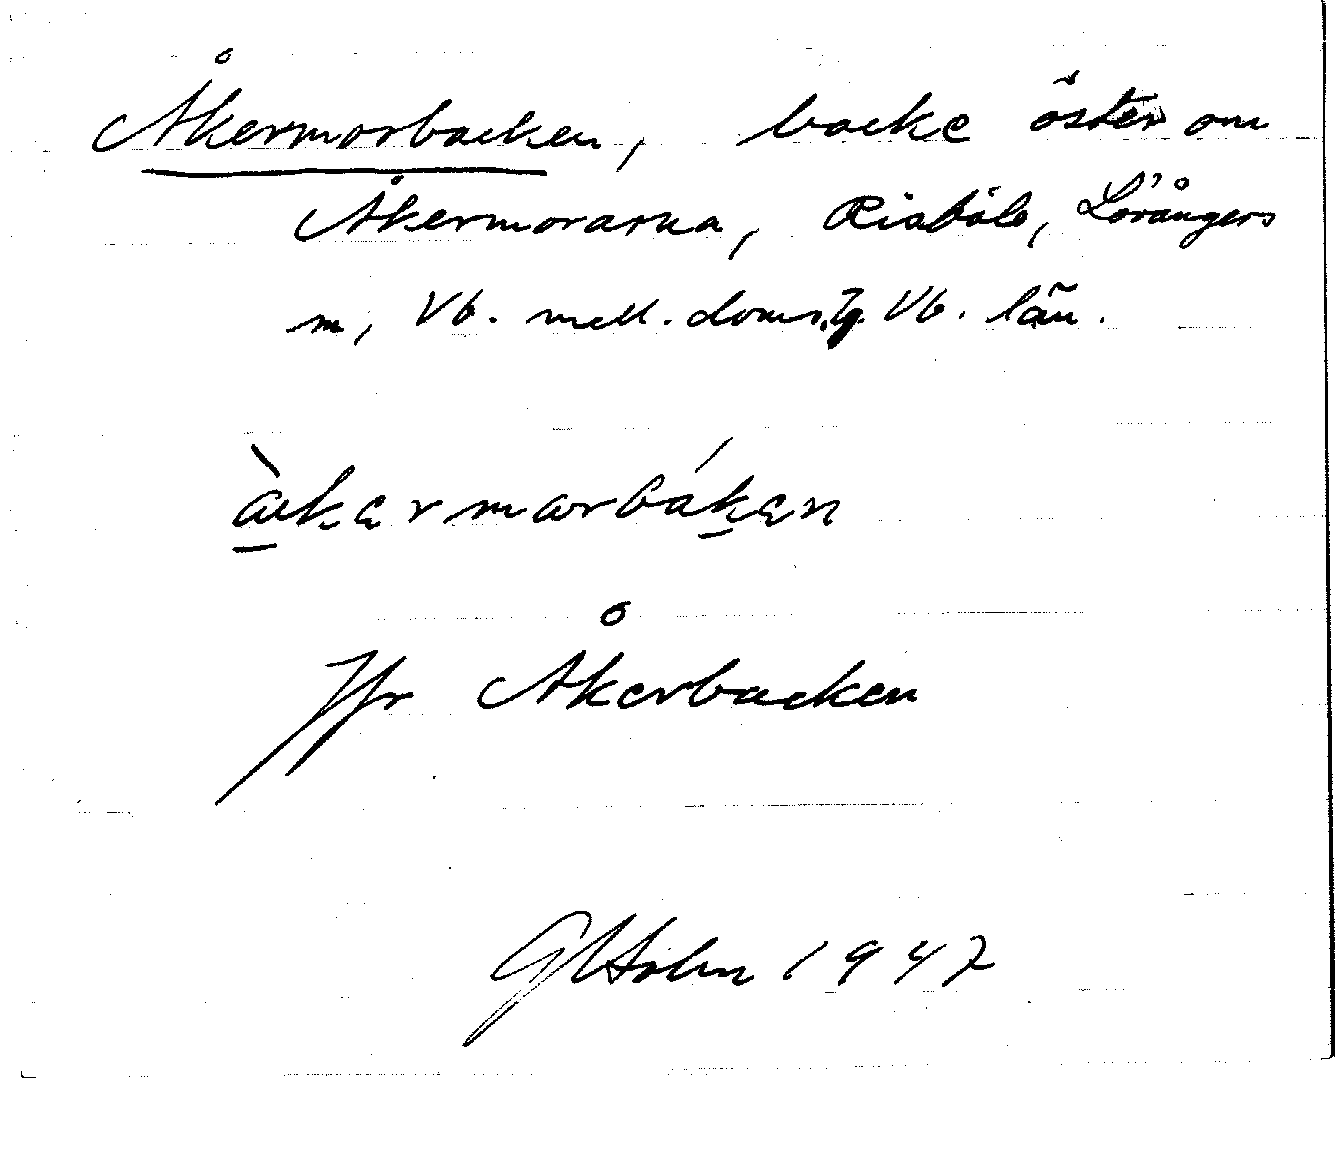 Åkermorbacken, backe öster om
Åkermorarna, Risböle, Lövångers
m, Vb. mell. doms, Vb. län.
àkermarbáken
Jfr Åkerbacken
GHolm 1947